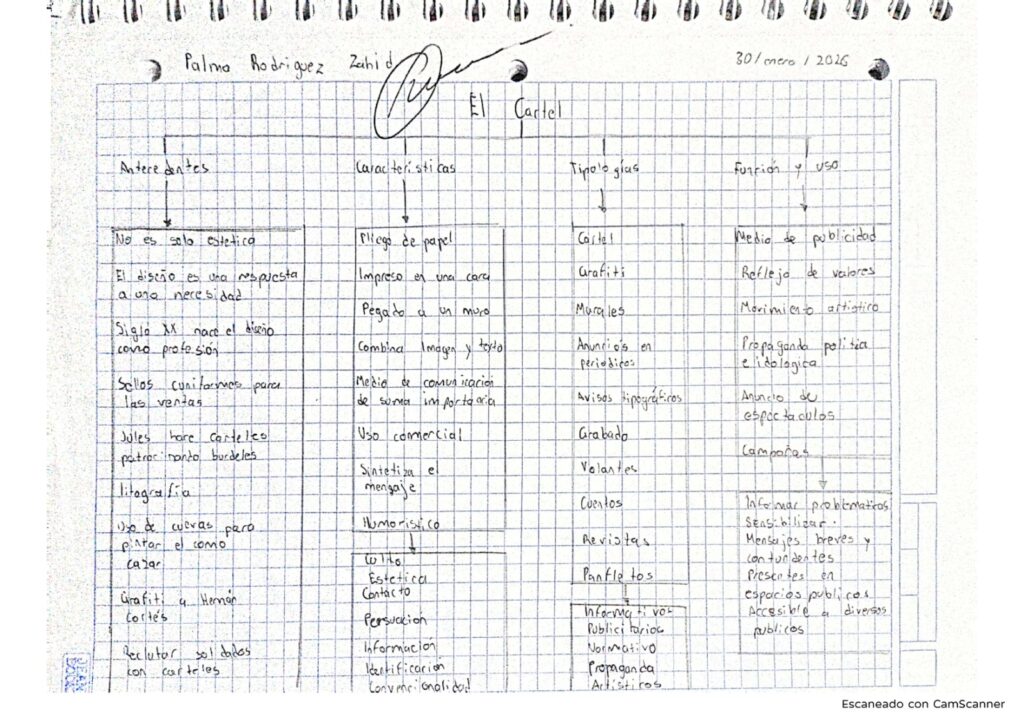 Palma Rodriguez Zahid
30/enero/2026
El Cartel
Antecedentes
No es solo estetica
El diseño es una respuesta
a una necesidad
Siglo XX nace el diseño
como profesión
Sellos cuniformes para
las ventas
Jules hace carteles
patrocinando burdeles
litografía
Uso de cuevas para
pintar el como
cazar
Grafiti a Hernán
Cortés
Reclutar soldados
con carteles
Características
Pliego de papel
Impreso en una cara
Pegado a un muro
Combina Imagen y texto
Medio de comunicación
de suma importacia
Uso comercial
Sintetiza el
mengaje
Humoristico
Culto
Estetica
Contacto
Persuación
Información
Identificación
Convencionalidad
Tipologías
Cartel
Grafiti
Murales
Anuncios en
periodicos
Avisos tipográficos
Grabado
Volantes
Cuentos
Revistas
Panfletos
Informativos
Publicitarios
Normativo
Propaganda
Artisticos
Función y uso
Medio de publicidad
Reflejo de valores
Movimiento artistico
Propaganda politica
e idologica
Anuncio de
espectaculos
Campañas
Informar problematicas
Sensibilizar
Mensajes breves y
contundentes
Presentes en
espacios publicos
Accesible a diversos
publicos
Escaneado con CamScanner